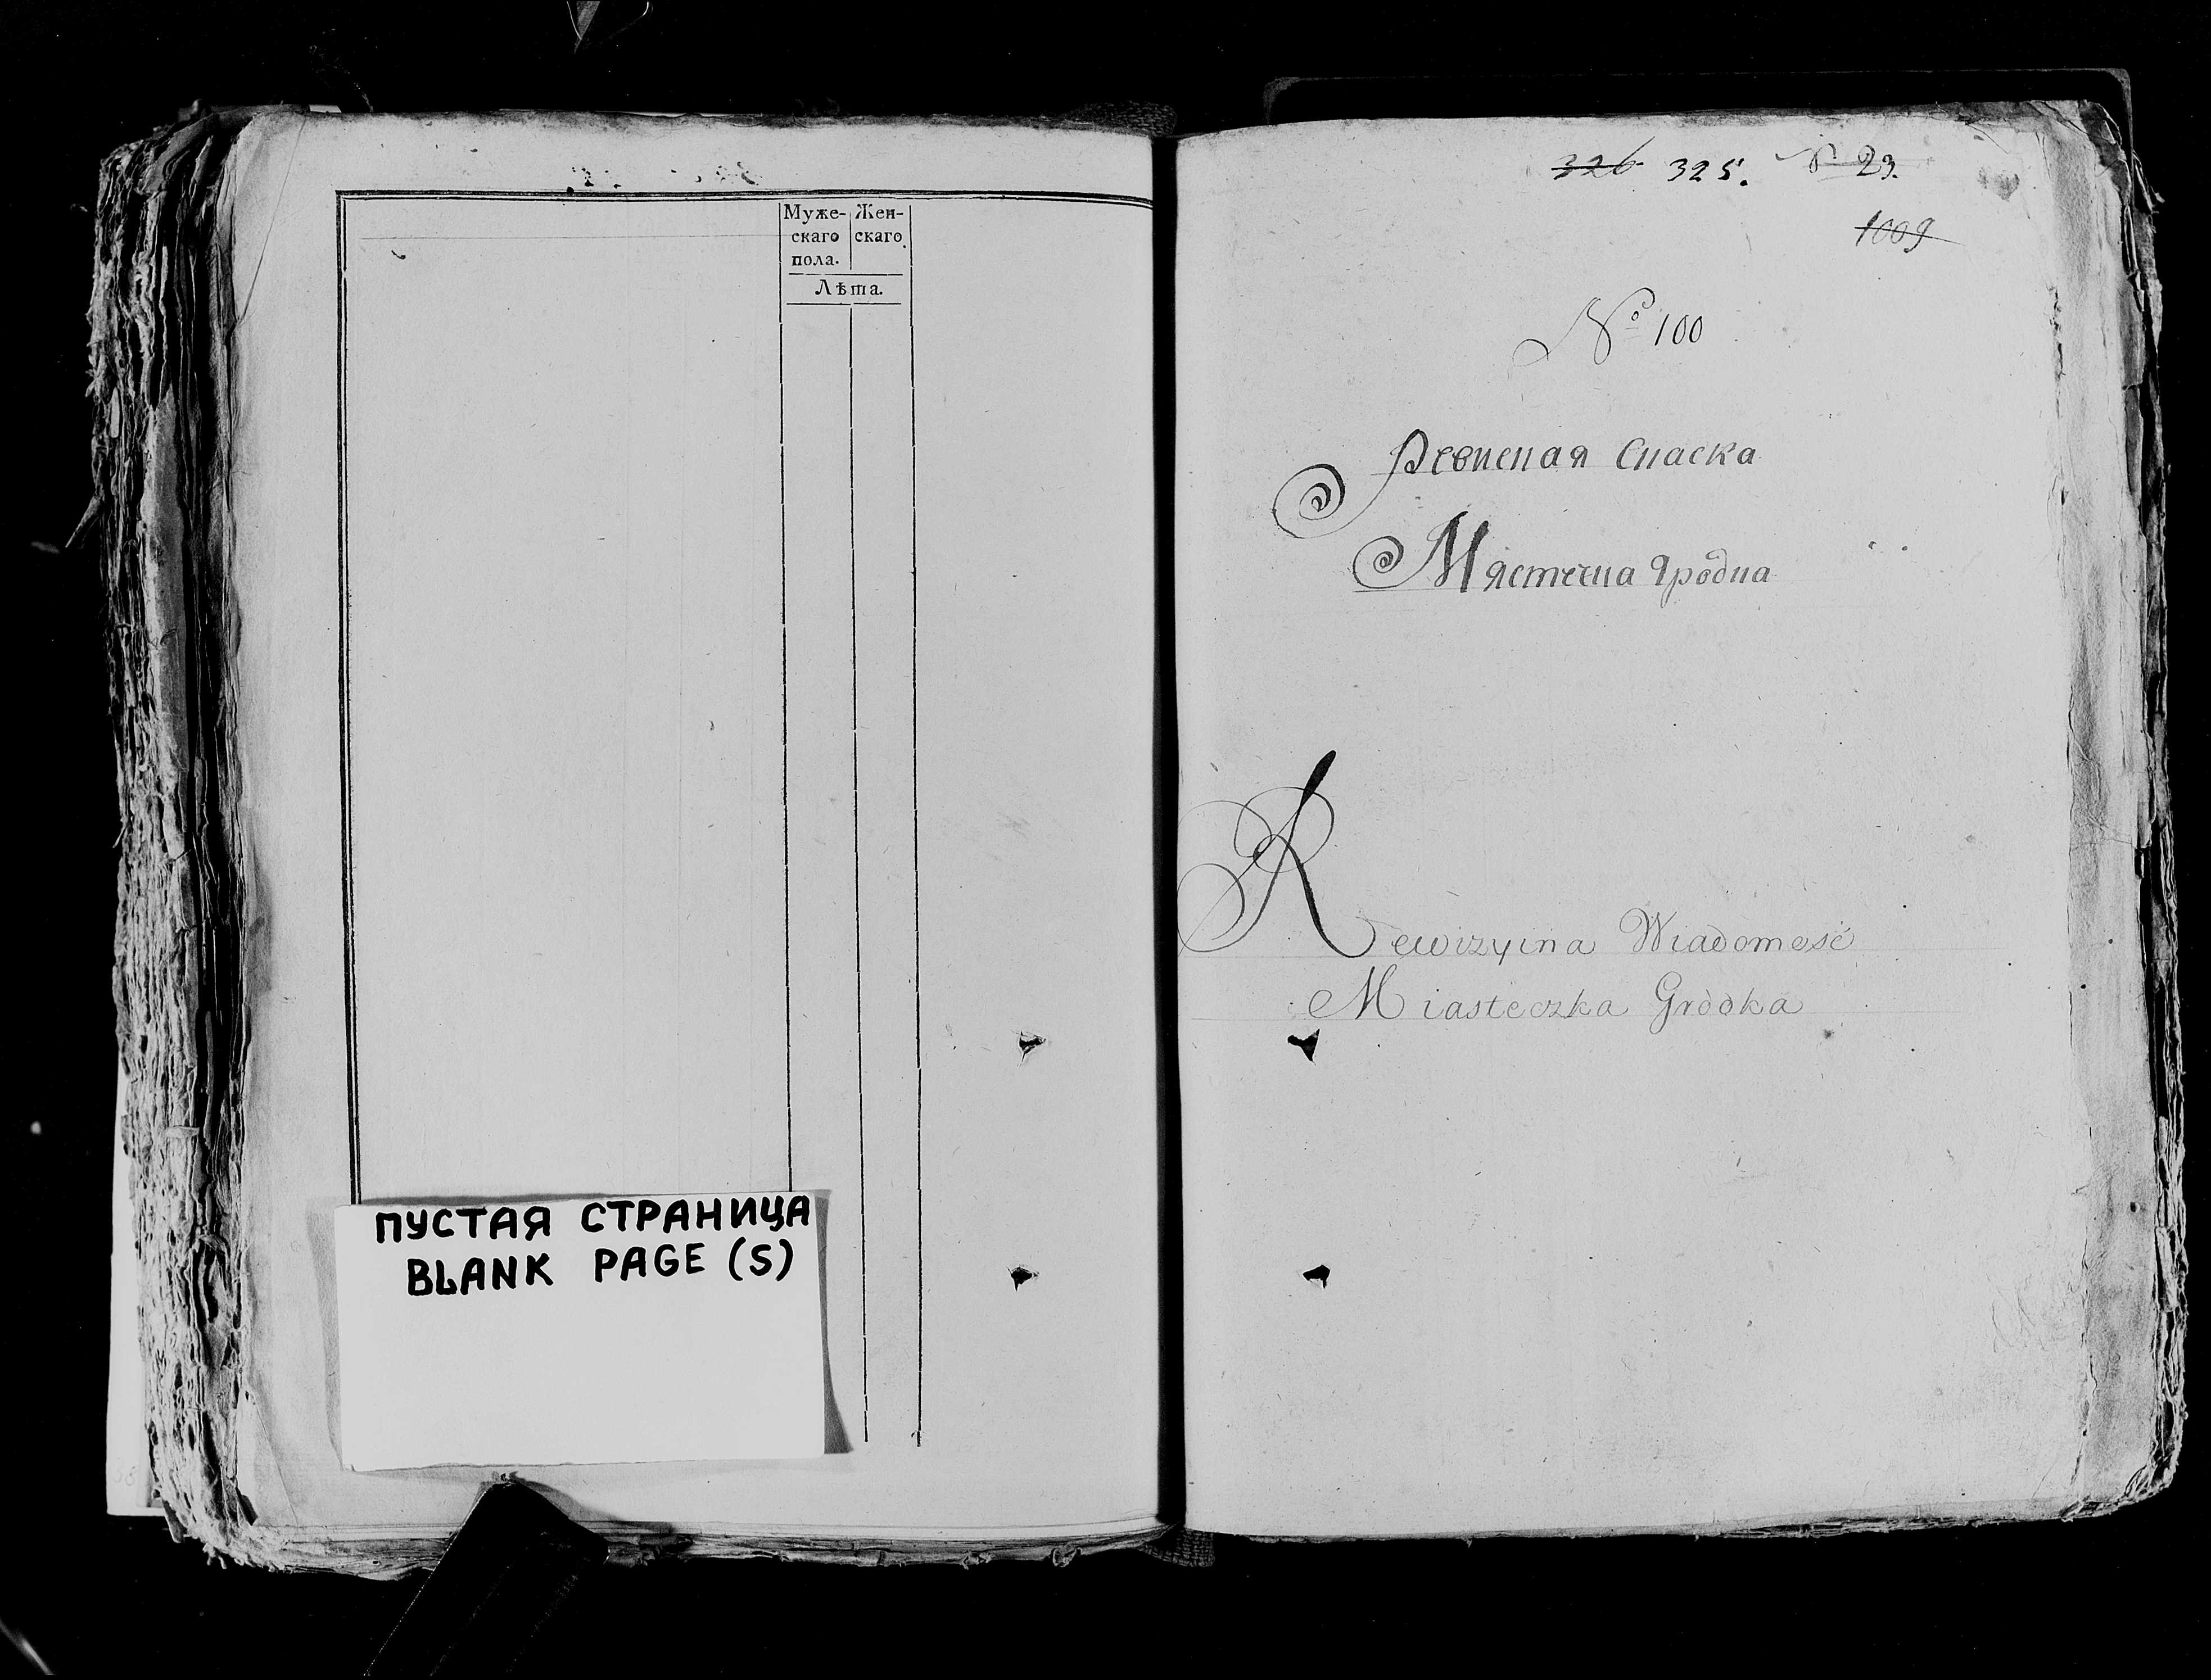 Муже- Жен-
скаго скаго
пола.
Лѣта.
ПУСТАЯ СТРАНИЦА
BLANK PAGE (S)
326 325. 23.
1009
№ 100
Ревиспая Спаска
Мястечна Гродна
Rewizyina Wiadomość
Miasteczka Gródka